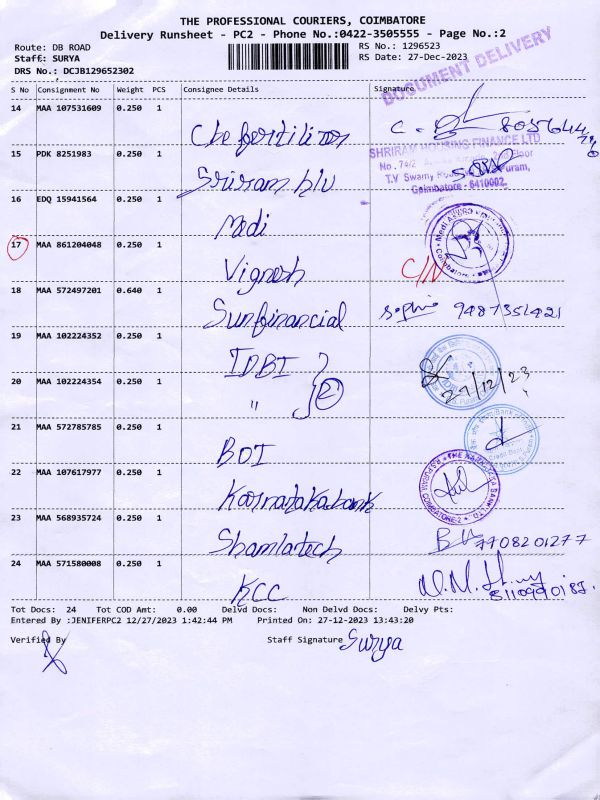 THE PROFESSIONAL COURIERS, COIMBATORE
Delivery Runsheet - PC2 - Phone No.:0422-3505555 - Page No.:2
Route: DB ROAD
RS No.: 1296523
Staff: SURYA
RS Date: 27-Dec-2023
DRS No.: DCJB129652302
DOCUMENT DELIVERY
S No Consignment No Weight PCS Consignee Details Signature
14 MAA 107531609 0.250 1
SHRIRAM HOUSING FINANCE LTD
No. 74/2
15 PDK 8251983 0.250 1
T.V Swamy
Coimbatore - 6410002.
Sriram
16 EDQ 15941564 0.250 1
Medi
17 MAA 861204048 0.250 1
Vignesh C/N
18 MAA 572497201 0.640 1
Sunfinancial 9487351421
19 MAA 102224352 0.250 1
IDBI 2
27/12/23
20 MAA 102224354 0.250 1
"
21 MAA 572785785 0.250 1
BOI
22 MAA 107617977 0.250 1
Karnatakabank
23 MAA 568935724 0.250 1
Shamlatech 7708201277
24 MAA 571580008 0.250 1
KCC
Tot Docs: 24 Tot COD Amt: 0.00 Delvd Docs: Non Delvd Docs: Delvy Pts:
Entered By :JENIFERPC2 12/27/2023 1:42:44 PM Printed On: 27-12-2023 13:43:20
Verified By Staff Signature Surya